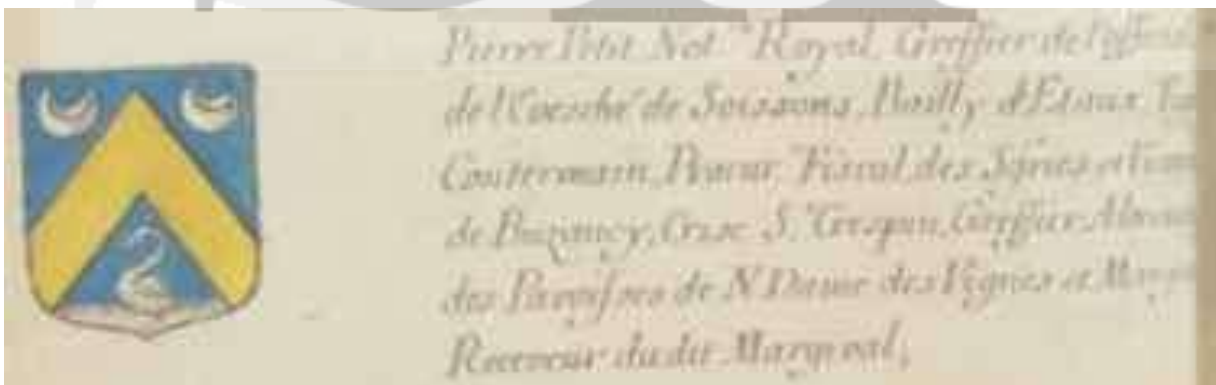 Pierre Petit Not.re Royal, Greffier de l'offi
de l'Evesché de Soissons, Bailly d'Estaux
Contermain, Procur Fiscal des Sgries et
de Buzancy, Croze S.t Crespin, Greffier
des Paroisses de N Dame des Vignes et
Receveur dudit Marqveal,